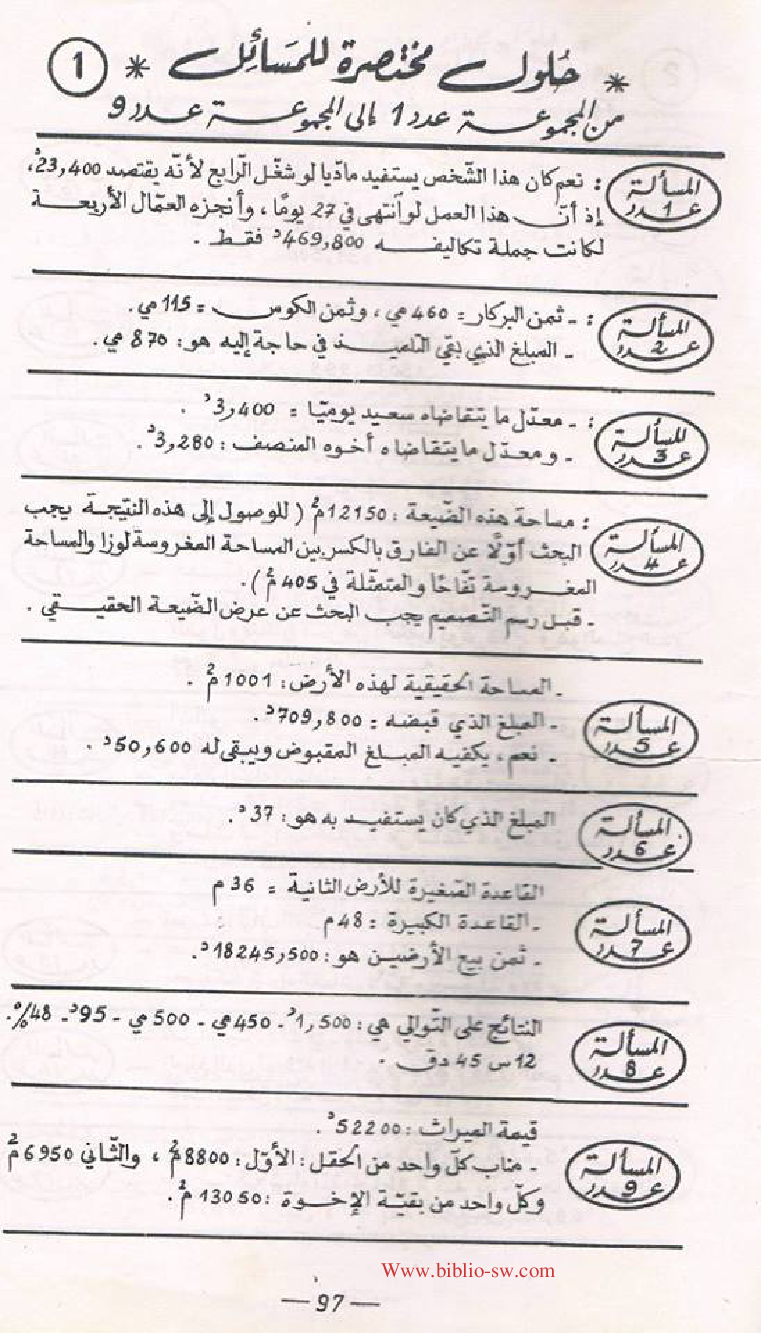 * حلول مختصرة للمسائل * 1
من المجموعة عدد 1 إلى المجموعة عدد 9
المسألة عدد 1 : نعم كان هذا الشّخص يستفيد مادّيا لو شغّل الرّابع لأنّه يقتصد 23,400د،
إذ أنّ هذا العمل لو أنتهى في 27 يومًا، وأنجزه العمّال الأربعة
لكانت جملة تكاليفه 469,800د فقط.
المسألة عدد 2 : - ثمن البركار = 460 مي، وثمن الكوس = 115 مي.
- المبلغ الذي بقي التلميذ في حاجة إليه هو: 870 مي.
المسألة عدد 3 : - معدّل ما يتقاضاه سعيد يوميّا = 3,400د.
- ومعدّل ما يتقاضاه أخوه المنصف: 3,280د.
المسألة عدد 4 : مساحة هذه الضّيعة: 12150م² (للوصول إلى هذه النتيجة يجب
البحث أوّلًا عن الفارق بالكسر بين المساحة المغروسة لوزا والمساحة
المغروسة تفّاحًا والمتمثّلة في 405 م²).
- قبل رسم التّصميم يجب البحث عن عرض الضّيعة الحقيقي.
المسألة عدد 5 - المساحة الحقيقية لهذه الأرض: 1001م².
- المبلغ الذي قبضه = 709,800د.
- نعم، يكفيه المبلغ المقبوض ويبقى له 50,600د.
المسألة عدد 6 المبلغ الذي كان يستفيد به هو: 37د.
المسألة عدد 7 القاعدة الصّغيرة للأرض الثانية = 36 م
- القاعدة الكبيرة: 48م
- ثمن بيع الأرضين هو: 18245,500د.
المسألة عدد 8 النتائج على التّوالي هي: 1,500د - 450مي - 500 مي - 95د - 48%.
12 س 45 دق.
المسألة عدد 9 قيمة الميراث: 52200د.
- مناب كلّ واحد من الحقل: الأوّل: 8800م²، والثّاني 6950م²
وكلّ واحد من بقيّة الإخوة: 13050م².
Www.biblio-sw.com
— 97 —